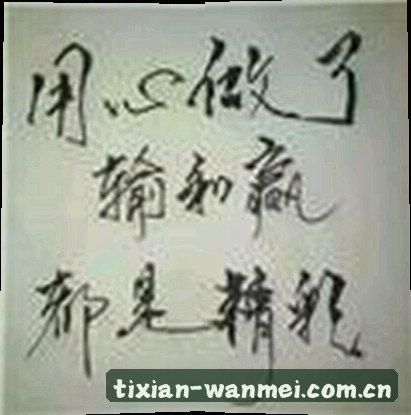 用心做了
输和赢
都是精彩
tixian-wanmei.com.cn